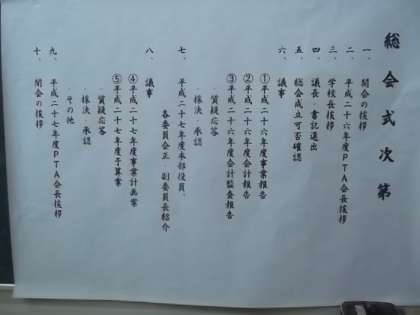 総会式次第
一、開会の挨拶
二、平成二十六年度PTA会長挨拶
三、学校長挨拶
四、議長・書記選出
五、総会成立可否確認
六、議事
①平成二十六年度事業報告
②平成二十六年度会計報告
③平成二十六年度会計監査報告
質疑応答
採決・承認
七、平成二十七年度本部役員、
各委員会正・副委員長紹介
八、議事
④平成二十七年度事業計画案
⑤平成二十七年度予算案
・質疑応答
・採決・承認
・その他
九、平成二十七年度PTA会長挨拶
十、閉会の挨拶